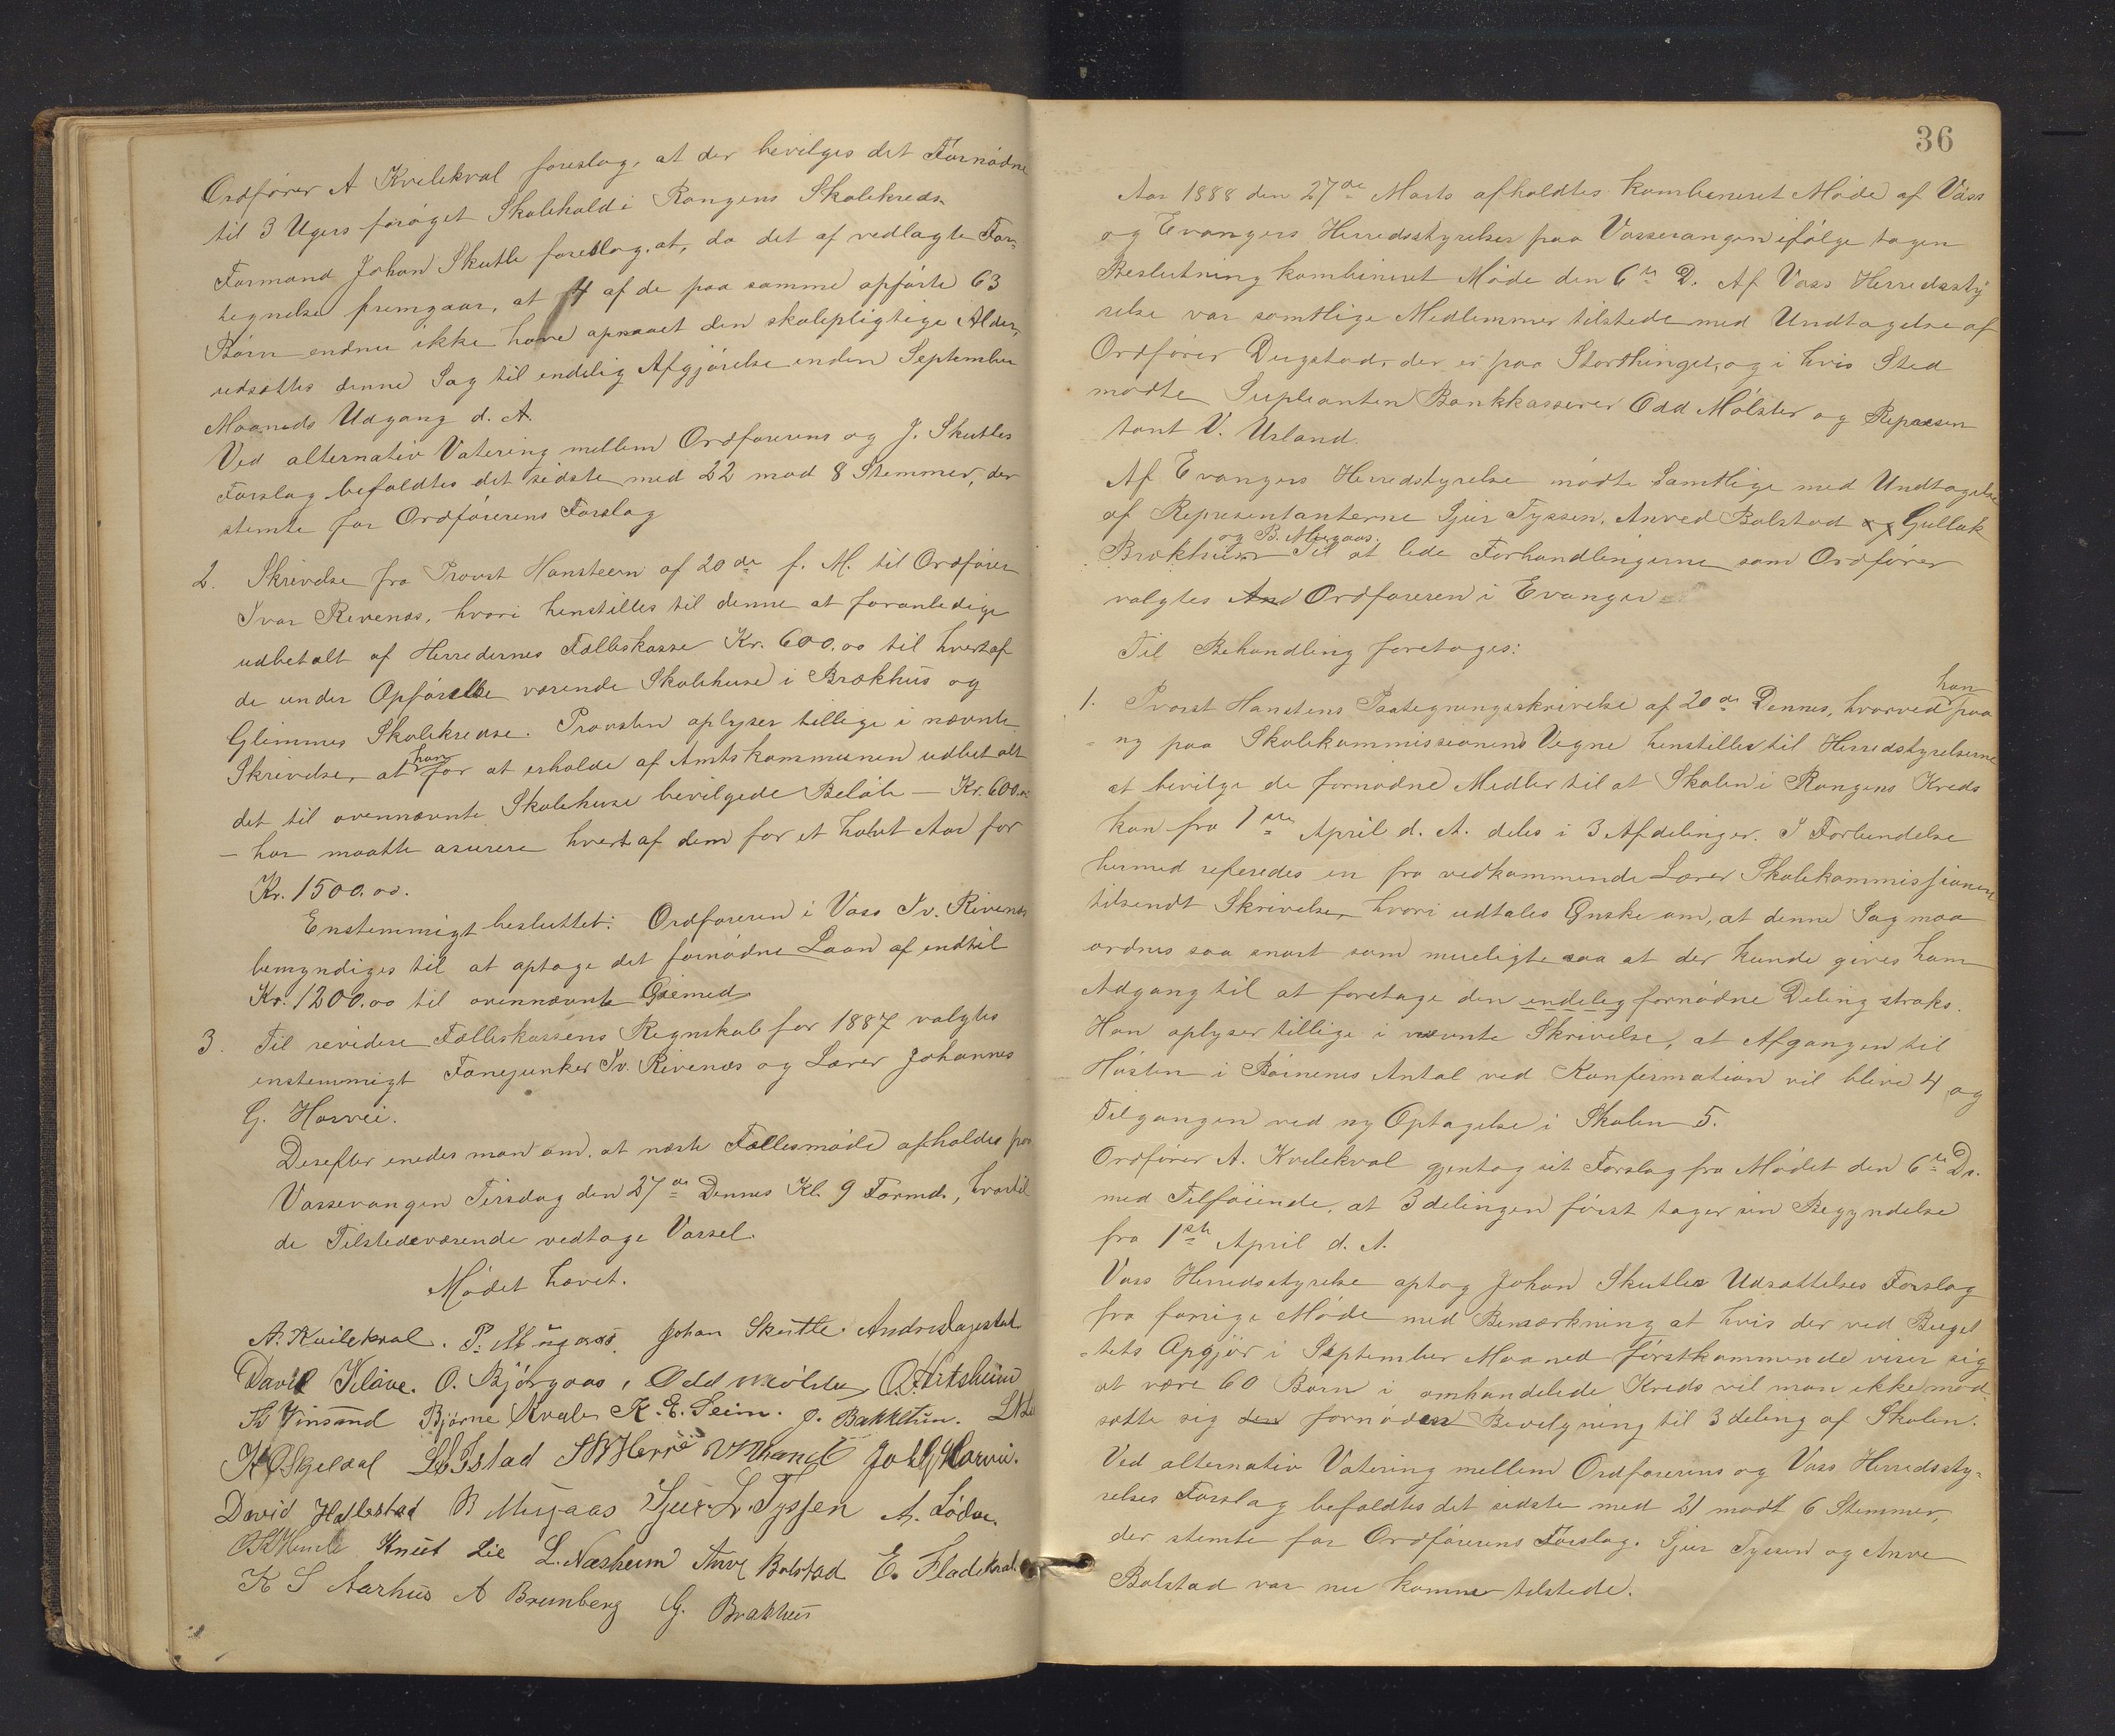 Ordfører A Kvilekval foreslog, at der bevilges det Fornødne
til 3 Ugers forøget Skolehold i Rongens Skolekreds.
Formand Johan Skutle foreslog, at, da det af vedlagte For-
tegnelse fremgaar, at 4 af de paa samme opførte 63
Børn endnu ikke have opnaaet den skolepligtige Alder,
udsættes denne Sag til endelig Afgjørelse inden September
Maaneds Udgang d. A.
Ved alternativ Votering mellem Ordførerens og J. Skutles
Forslag befoldtes det sidste med 22 mod 8 Stemmer, der
stemte for Ordførerens Forslag
2. Skrivelse fra Provst Hansteen af 20de f. M. til Ordfører
Ivar Rivenæs, hvori henstilles til denne at foranledige
udbetalt af Herredernes Fælleskasse Kr. 600.00 til hvert af
de under Opførelse værende Skolehuse i Brækhus og
Glimmes Skolekredse. Provsten oplyser tillige i nævnte
Skrivelse, at han for at erholde af Amtskommunen udbetalt
det til ovennævnte Skolehuse bevilgede Beløb — Kr. 600.00
— har maatte asurere hvert af dem for et halvt Aar for
Kr. 1500.00.
Enstemmigt besluttet: Ordføreren i Voss Iv. Rivenæs
bemyndiges til at optage det fornødne Laan af indtil
Kr. 1200.00 til ovennævnte Øiemed
3. Til revidere Fælleskassens Regnskab for 1887 valgtes
enstemmigt Fanejunker Iv. Rivenæs og Lærer Johannes
G. Horvei.
Derefter enedes man om, at næste Fællesmøde afholdes paa
Vossevangen Tirsdag den 27de Dennes Kl. 9 Formd., hvortil
de Tilstedeværende vedtage Varsel.
Mødet hævet.
A. Kvilekval. P. Mügaas. Johan Skutle.
David Kløve. O. Bjørgaas, Odd Mölster
Bjørne Kvale K. E. Seim. J. Bakketun.
Istad
David Hallestad B Mugaas Sjur L. Tyssen
Knut Lie L. Næsheim Anve Bolstad E. Fladekval
K S Aarhus A Brunberg G. Brækhus
36
Aar 1888 den 27de Marts afholdtes kombineret Møde af Voss
og Evangers Herredsstyrelser paa Vossevangen ifølge tagen
Beslutning kombineret Møde den 6te D. Af Voss Herredssty
relse var samtlige Medlemmer tilstede med Undtagelse af
Ordfører Dugstad, der er paa Storthinget, og i hvis Sted
mødte Supleanten Bankkasserer Odd Mölster og Repræsen
tant V. Urland.
Af Evangers Herredstyrelse mødte Samtlige med Undtagelse
af Representanterne Sjur Tyssen, Anved Bolstad og Gullak
og B. Mugaas.
Brækhus Til at lede Forhandlingerne som Ordfører
valgtes And Ordføreren i Evanger
Til Behandling foretoges:
han
1. Provst Hanstens Paategningsskrivelse af 20de Dennes, hvorved paa
ny paa Skolekommissionens Vegne henstilles til Herredstyrelserne
at bevilge de fornødne Medler til at Skolen i Rongens Kreds
kan fra 1ste April d. A. deles i 3 Afdelinger. I Forbindelse
hermed refereredes en fra vedkommende Lærer Skolekommissjonen
tilsendt Skrivelse, hvori udtales Ønske om, at denne Sag maa
ordnes saa snart som mueligt saa at der kunde gives ham
Adgang til at foretage den endelig fornødne Deling straks.
Han oplyser tillige i nævnte Skrivelse, at Afgangen til
Høsten i Børnenes Antal ved Konfirmation vil blive 4 og
Tilgangen ved ny Optagelse i Skolen 5.
Ordfører A. Kvilekval gjentog sit Forslag fra Mødet den 6te Ds.
med Tilføiende, at 3 delingen først tager sin Begyndelse
fra 1ste April d. A.
Voss Herredsstyrelse optog Johan Skutles Udsættelses Forslag
fra forrige Møde med Bemærkning at hvis der ved Buget
-tets Opgjør i September Maaned førstkommende viser sig
at være 60 Børn i omhandlede Kreds vil man ikke mod
sætte sig den fornøden Bevilgning til 3 deling af Skolen.
Ved alternativ Votering mellem Ordførerens og Voss Herredssty-
relses Forslag befoldtes det sidste med 21 modt 6 Stemmer,
der stemte for Ordførerens Forslag. Sjur Tyssen og Anve
Bolstad var nu komne tilstede.